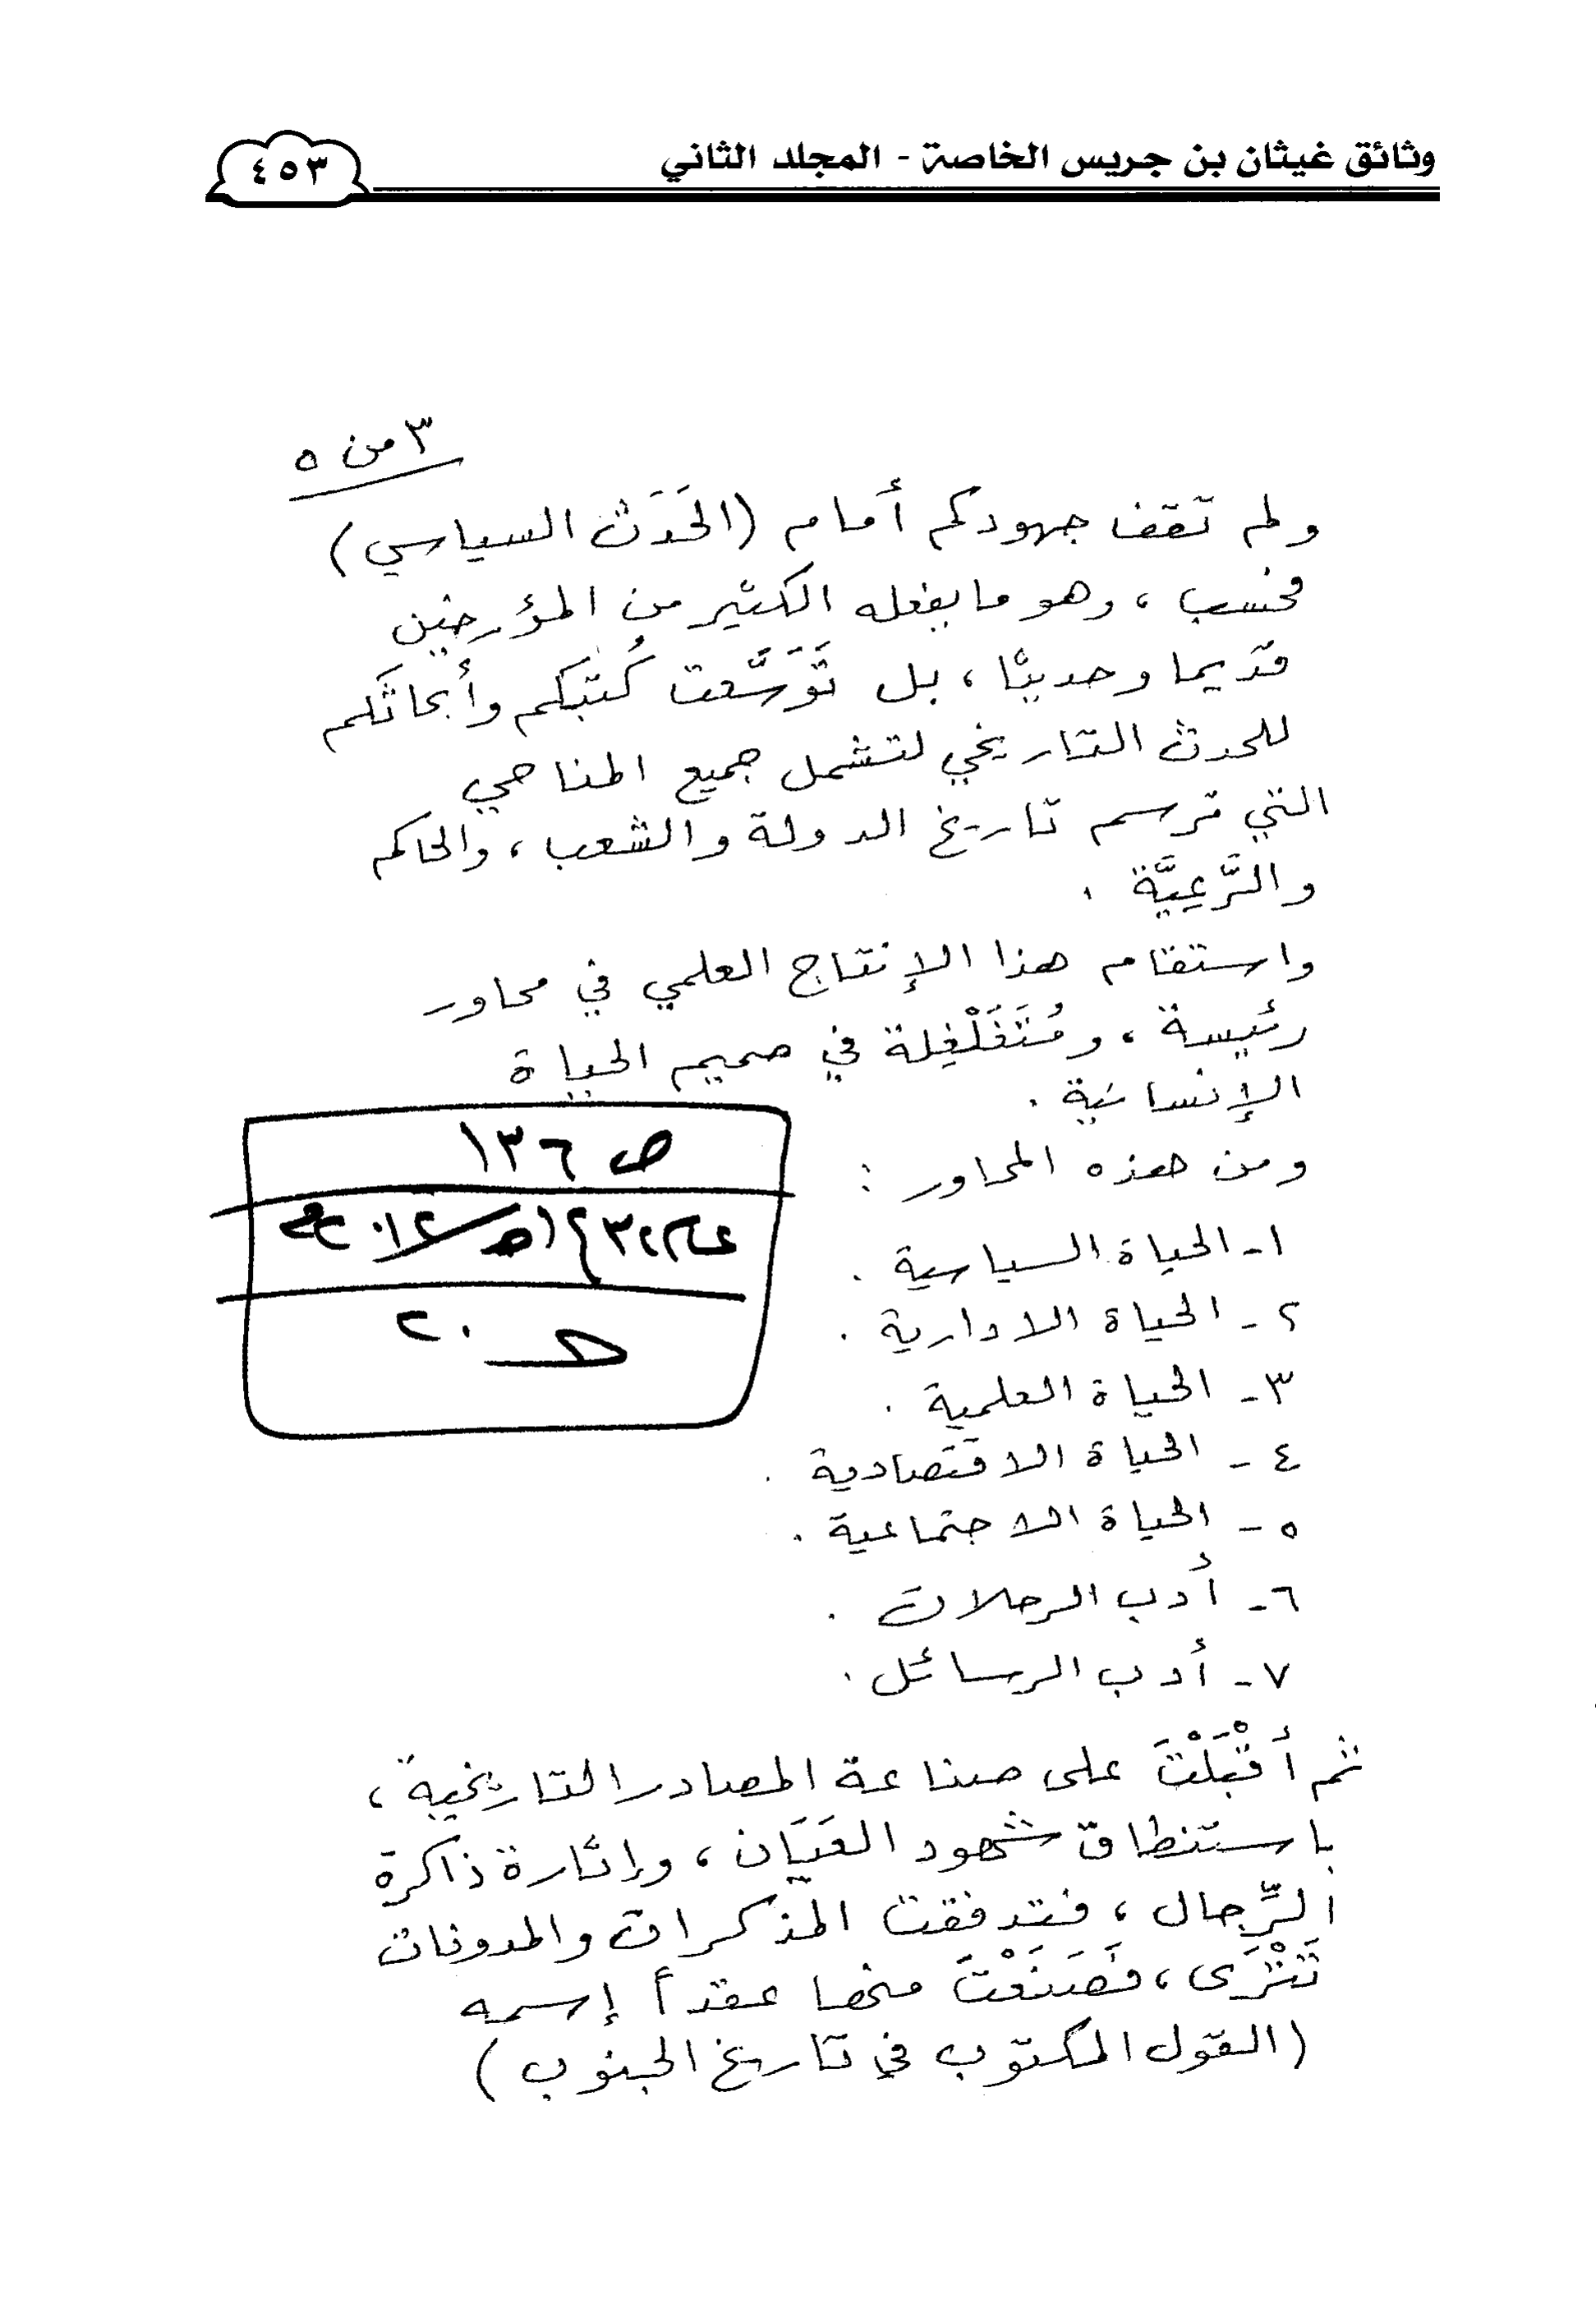 وثائق غيثان بن جريس الخاصة - المجلد الثاني
٤٥٣
٣ من ٥
ولم تقف جهودكم أمام (الحَدَث السياسي)
فحسب ، وهو ما يفعله الكثير من المؤرخين
قديما وحديثًا ، بل تَوَسَّعت كُتبكم وأبحاثكم
للحدث التاريخي لتشمل جميع المناحي
التي ترسم تاريخ الدولة والشعب ، والحاكم
والرَّعِيَّة .
واستقام هذا الإنتاج العلمي في محاور
رئيسة ، ومُتَغَلْغِلة في صميم الحياة
الإنسانية .
ومن هذه المحاور :
ص ١٣٦
١- الحياة السياسية .
٢- الحياة الادارية .
ح ٢٠
٣- الحياة العلمية .
٤- الحياة الاقتصادية .
٥- الحياة الاجتماعية .
٦- أدب الرحلات .
٧- أدب الرسائل .
ثم أقْبَلْتَ على صناعة المصادر التاريخية ،
باستنطاق شهود العَيَان ، وإثارة ذاكرة
الرِّجال ، فتدفقت المذكرات والمدونات
تَتْرَى ، فَصَنَعْتَ منها عقداً إسمه
(القول المكتوب في تاريخ الجنوب)